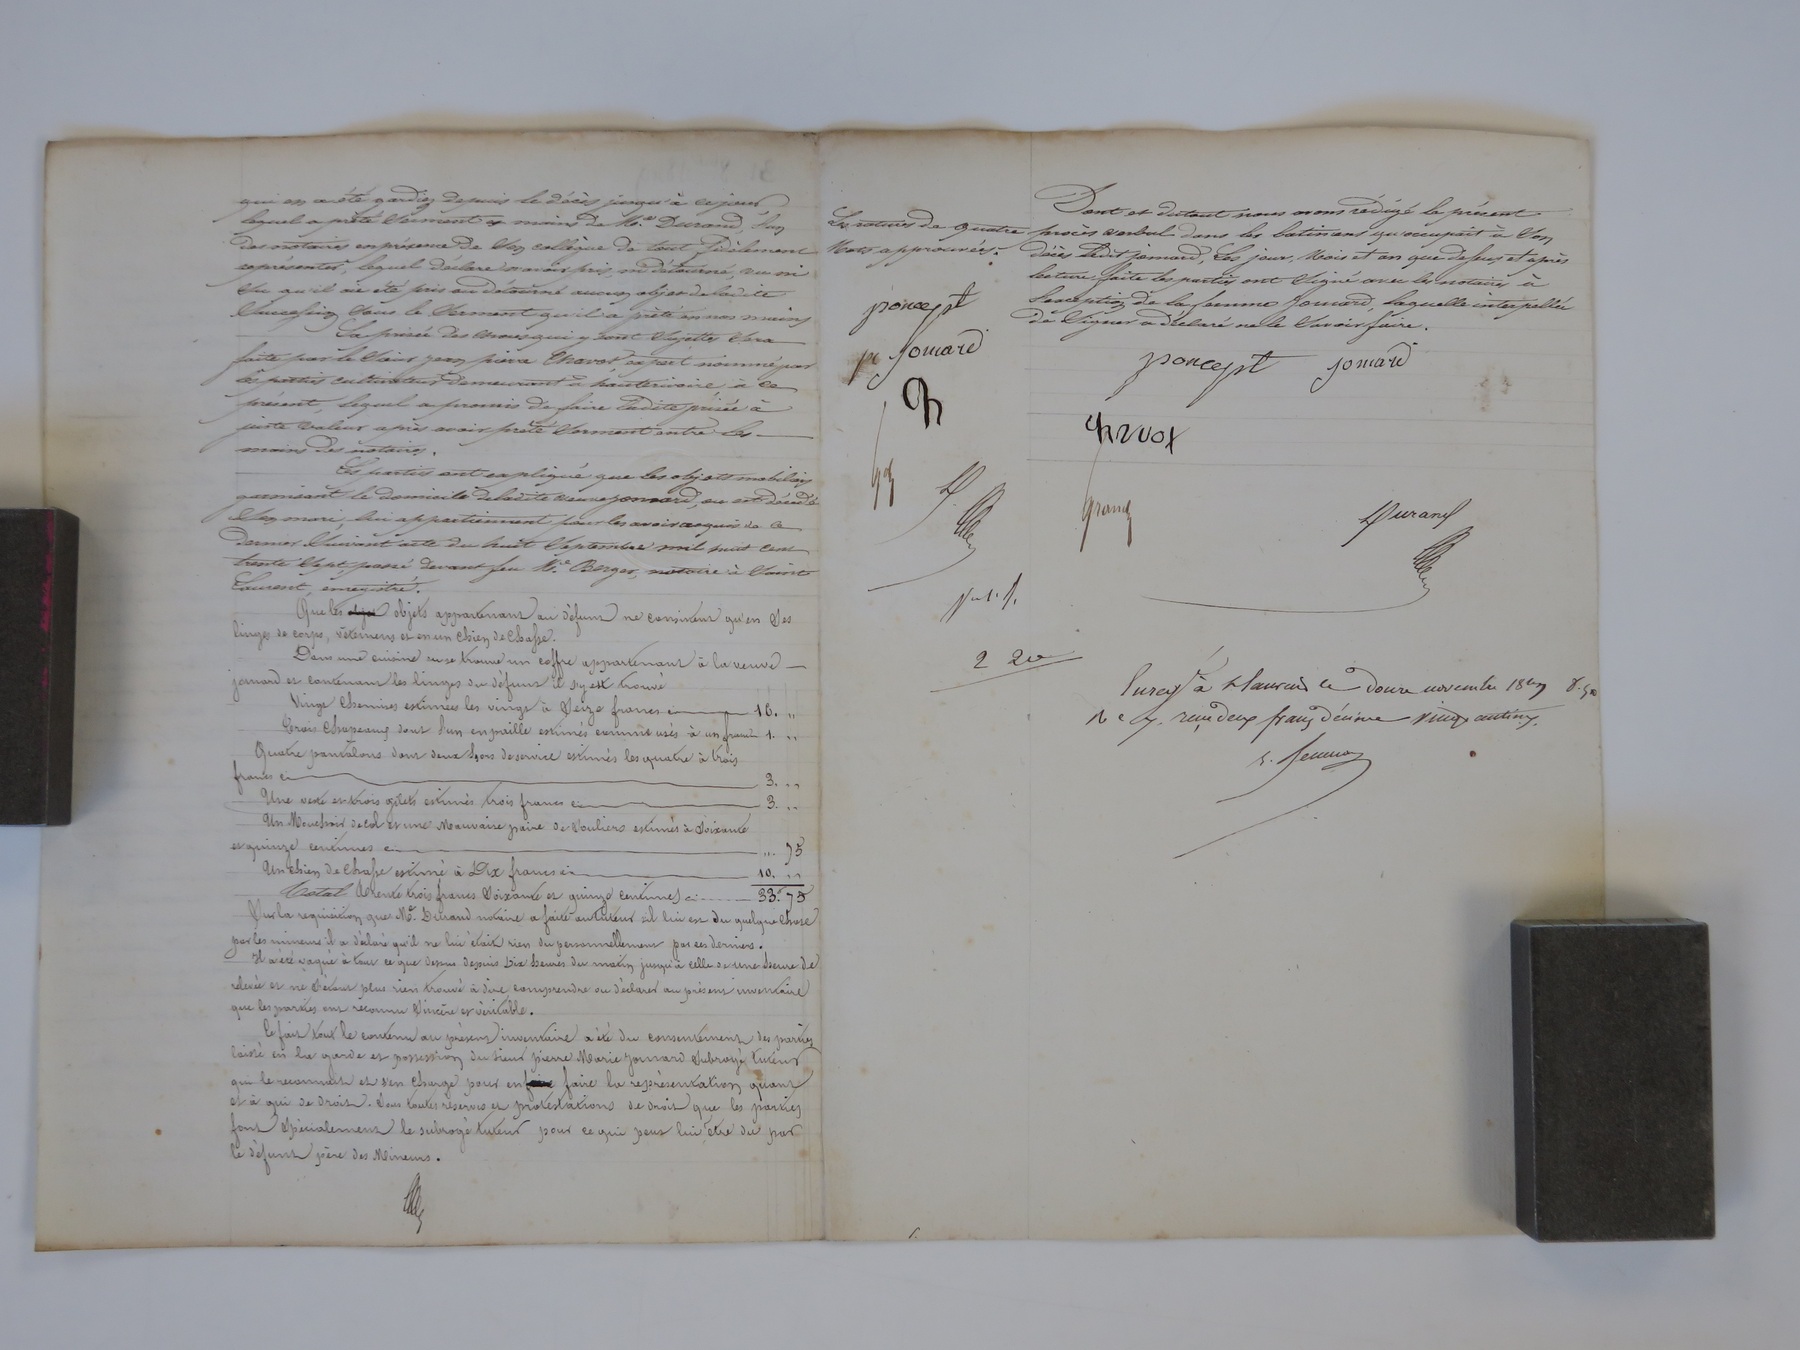 qui en a été gardien depuis le décès jusqu'à ce jour
lequel a prêté serment es mains de Me. Durand, l'un
des notaires en présence de son collègue de tout fidèlement
représenter, lequel déclare n'avoir pris, ni détourné, vu ni
su qu'il ait été pris ou détourné aucun objet de ladite
succession sous le serment qu'il a prêté en nos mains
La prisée des choses qui y sont sujettes sera
faite par le sieur jean pierre Chavot expert nommé par
les parties cultivateur demeurant à hauterivoire à ce
présent, lequel a promis de faire ladite prisée à
juste valeur après avoir prêté serment entre les
mains des notaires.
Les parties ont expliqué que les objets mobiliers
garnissant le domicile de ladite veuve jomard, ou est décédé
son mari, lui appartiennent pour les avoir acquis de ce
dernier suivant acte du huit Septembre mil huit cent
trente sept passé devant feu Me. Berger, notaire à Saint
Laurent, enregistré.
Que les objets appartenant au défunt ne consistent qu'en ses
linges de corps, vêtemens et en un chien de chasse.
Dans une cuisine ou se trouve un coffre appartenant à la veuve
jomard et contenant les linges du défunt il s'y est trouvé
Vingt Chemises estimées les vingt à Seize francs ci 16. "
Trois Chapeaux dont l'un en paille estimés comme usés à un franc 1. "
Quatre pantalons dont deux hors de service estimés les quatre à trois
francs ci 3. "
Une veste et trois gilets estimés trois francs ci 3. "
Un Mouchoir de col et une Mauvaise paire de Souliers estimés à Soixante
et quinze centimes ci ". 75
Un chien de chasse estimé à Dix francs ci 10. "
Total Trente trois francs Soixante et quinze centimes ci 33. 75
Sur la requisition que Me. Durand notaire a faite au tuteur s'il lui est du quelque chose
par les mineurs il a déclaré qu'il ne lui était rien du personnellement par ces derniers.
Il a été vaqué à tout ce que dessus depuis Dix heures du matin jusqu'à celle de une heure de
relevée et ne s'étant plus rien trouvé à dire comprendre ou déclarer au présent inventaire
que les parties ont reconnu Sincère et véritable.
Ce fait tout le contenu au présent inventaire a été du consentement des parties
laissé en la garde et possession du sieur pierre Marie jomard Subrogé tuteur
qui le reconnait et s'en charge pour en faire la représentation quant
et à qui de droit. Sous toutes réserves et protestations de droit que les parties
font Spécialement le subrogé tuteur pour ce qui peut lui être du par
le défunt père des Mineurs.
Les ratures de quatre
Mots approuvées.
poncept
jomard
Ch
2 20
Dont et du tout nous avons rédigé le présent
procès verbal dans les batimens qu'occupait à son
décès ledit jomard, Les jour, Mois et an que dessus et après
lecture faite les parties ont Signé avec les notaires à
l'exception de la femme Jomard, laquelle interpellée
de Signer a déclaré ne le Savoir faire.
poncept jomard
Chavot
Durand
Enregé à St Laurent le douze novembre
reçu deux francs décime vingt centimes.